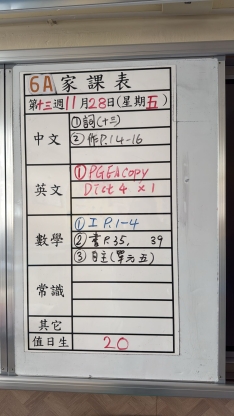 6A 家課表
第十三週 11月28日(星期五)
中文
①詞(十三)
②作P.14-16
英文
①PGEA copy
Dict 4 x 1
數學
①工 P.1-4
②書P.35, 39
③自主(單元五)
常識
其它
值日生 20